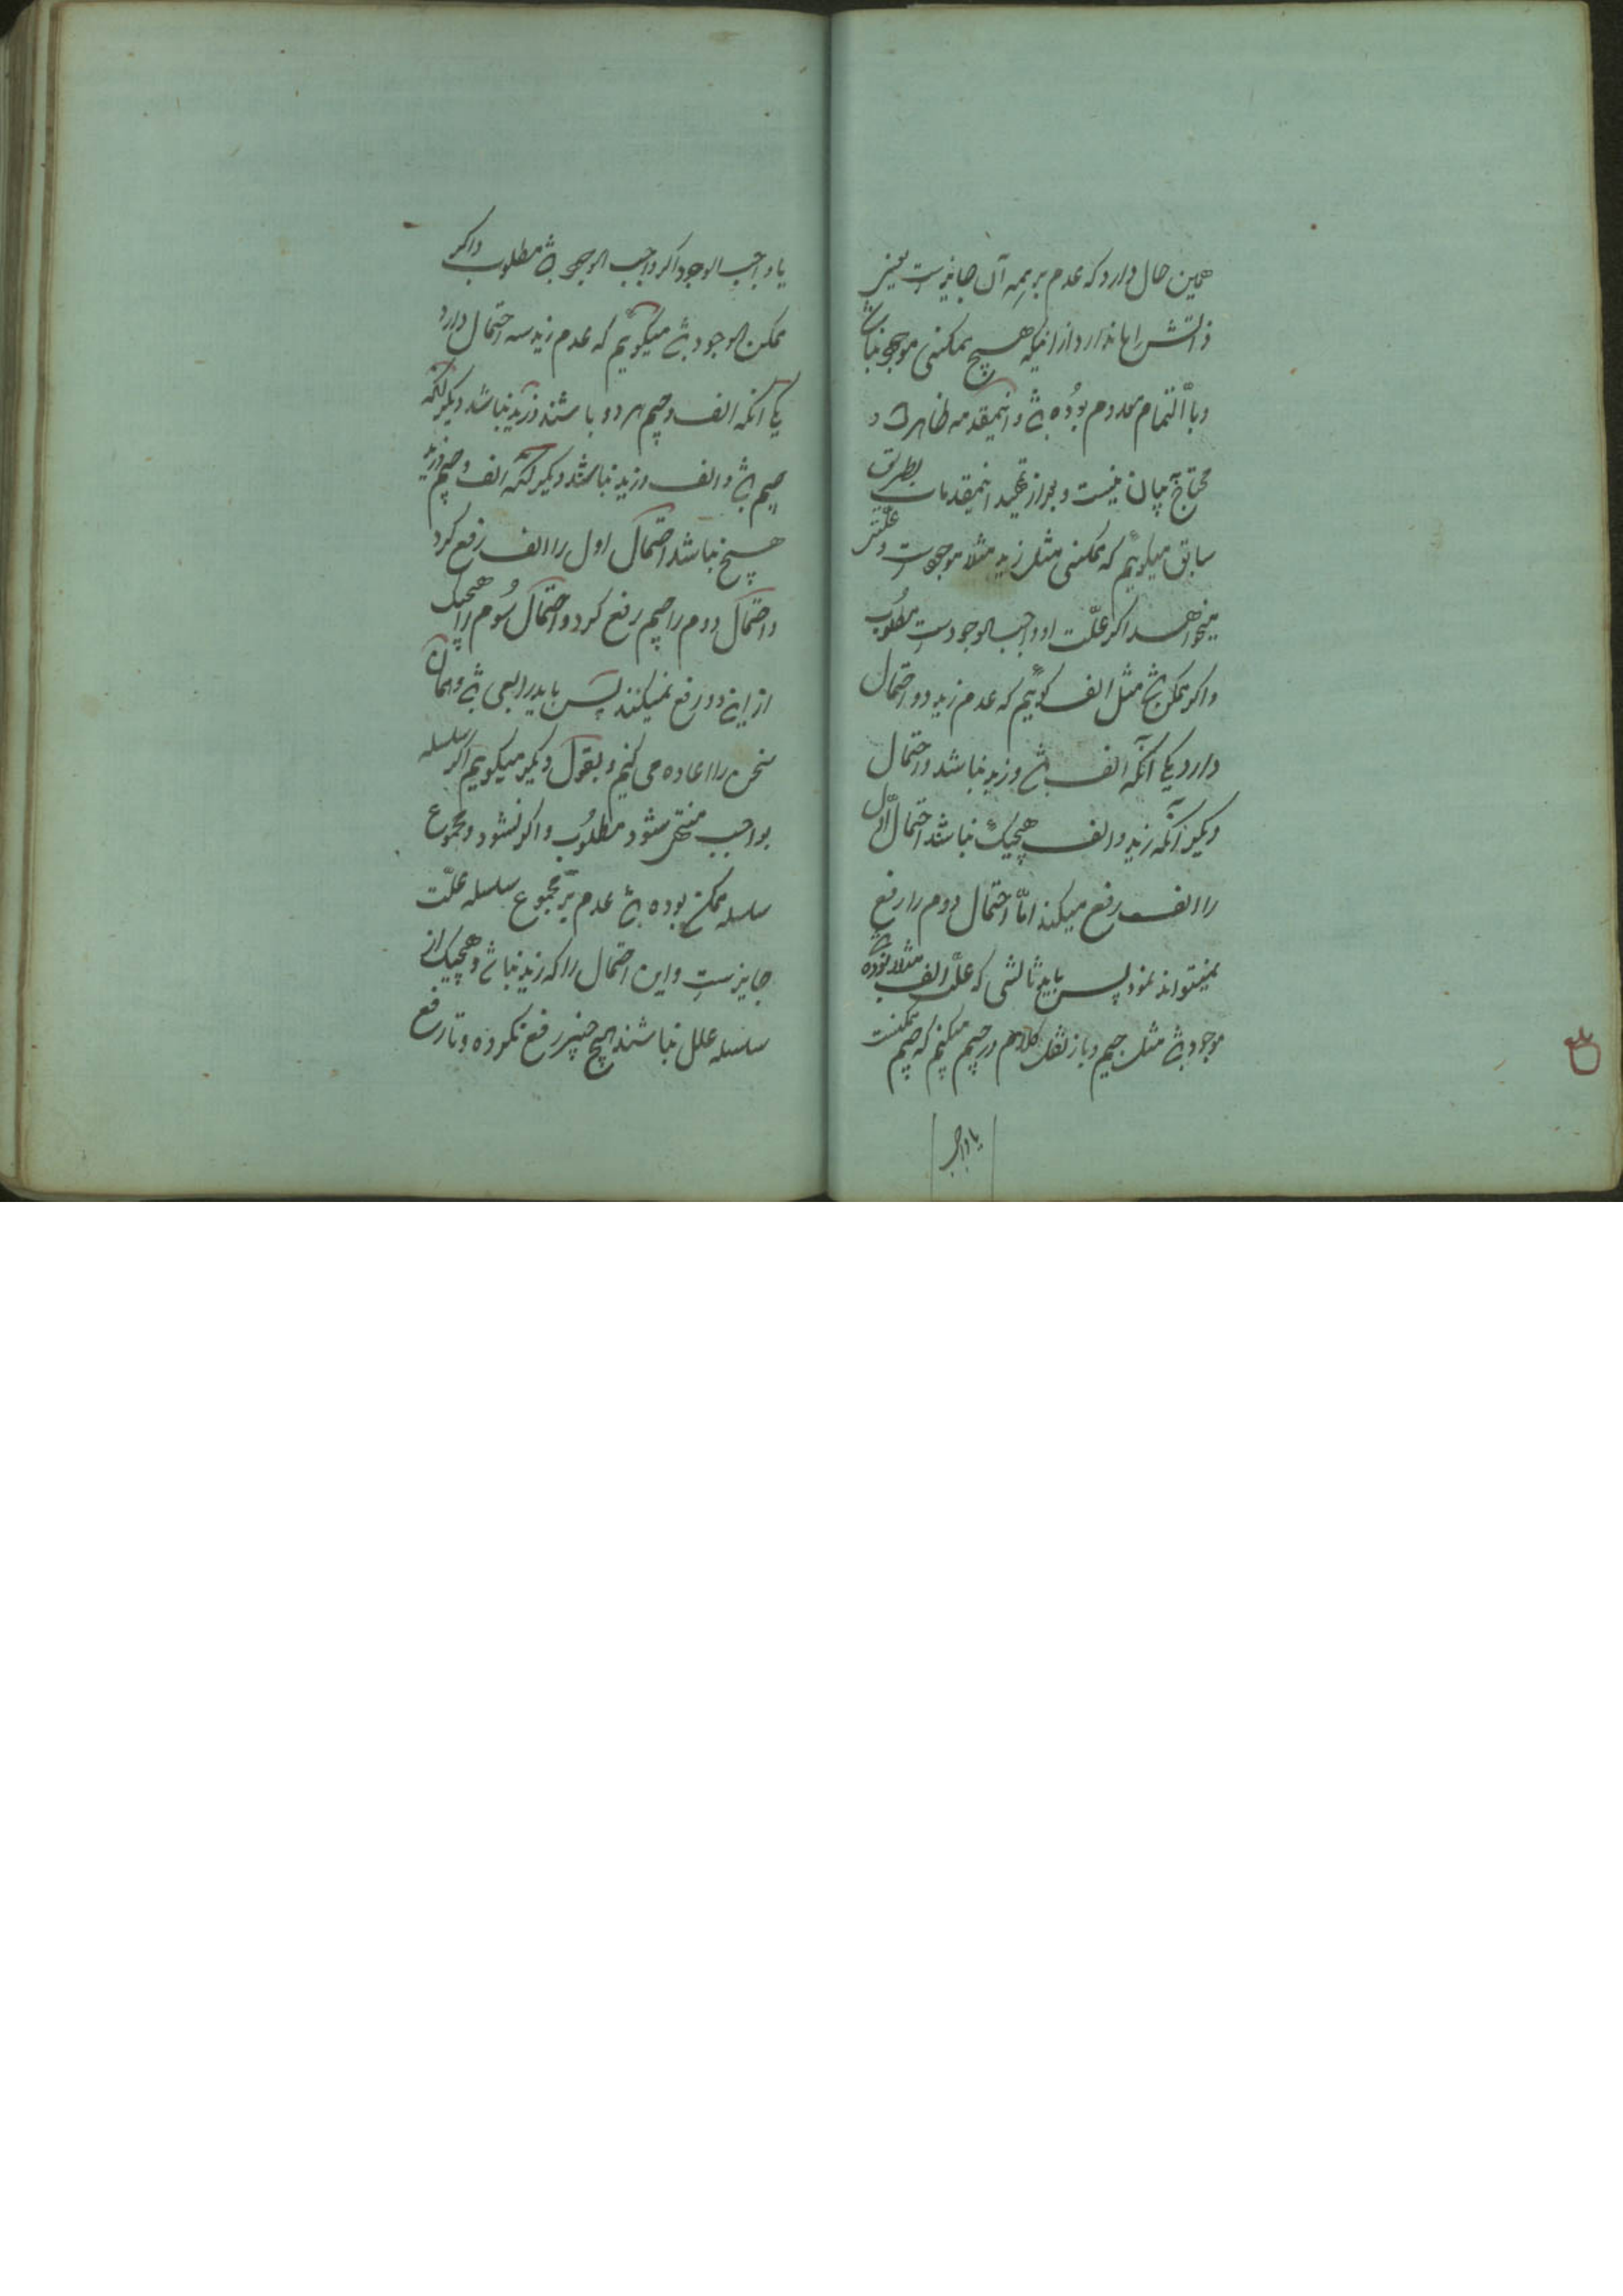 همین حال دارد که عدم بر همه آن جایزست یعنی
ذاتش ابا ندارد از اینکه هیچ ممکنی موجود نباشد
و با التمام معدوم بوده باشد و اینمقدمه ظاهرست و
محتاج ببیان نیست و بعد از تمهید اینمقدمات بطریق
سابق میکوییم که ممکنی مثل زید مثلا موجودست و علتی
میخواهد اکر علّت او واجب الوجودست مطلوب
و اکر ممکن باشد مثل الف کوییم که عدم زید دو احتمال
دارد یکی آنکه الف باشد و زید نباشد و احتمال
دیکر آنکه زید و الف هیچیک نباشد احتمال اوّل
را الف رفع میکند امّا احتمال دوم را رفع
نمیتواند نمود پس باید ثالثی که علّت الف مثلا بوده باشد
موجود باشد مثل جیم و باز نقل کلام در جیم میکنیم که جیم ممکنست
یا واجب
یا واجب الوجود اکر واجب الوجود باشد مطلوب و اکر
ممکن الوجود باشد میکوییم که عدم زید سه احتمال دارد
یکی آنکه الف و جیم هر دو باشند و زید نباشد دیکر آنکه
جیم باشد و الف و زید نباشد دیکر آنکه الف و جیم و زید
هیچ نباشد احتمال اول را الف رفع کرد
و احتمال دوم را جیم رفع کرد و احتمال سُوم را هیچیک
از این دو رفع نمیکنند پس باید رابعی باشد و همان
سخن را اعاده می کنیم و بقول دیکر میکوییم اکر سلسله
بواجب منتهی شود مطلوب و اکر نشود و مجموع
سلسله ممکن بوده باشد عدم بر مجموع سلسله علّت
جایزست و این احتمال را که زید نباشد و هیچیک از
سلسله علل نباشند هیچ چیز رفع نکرده و تا رفع